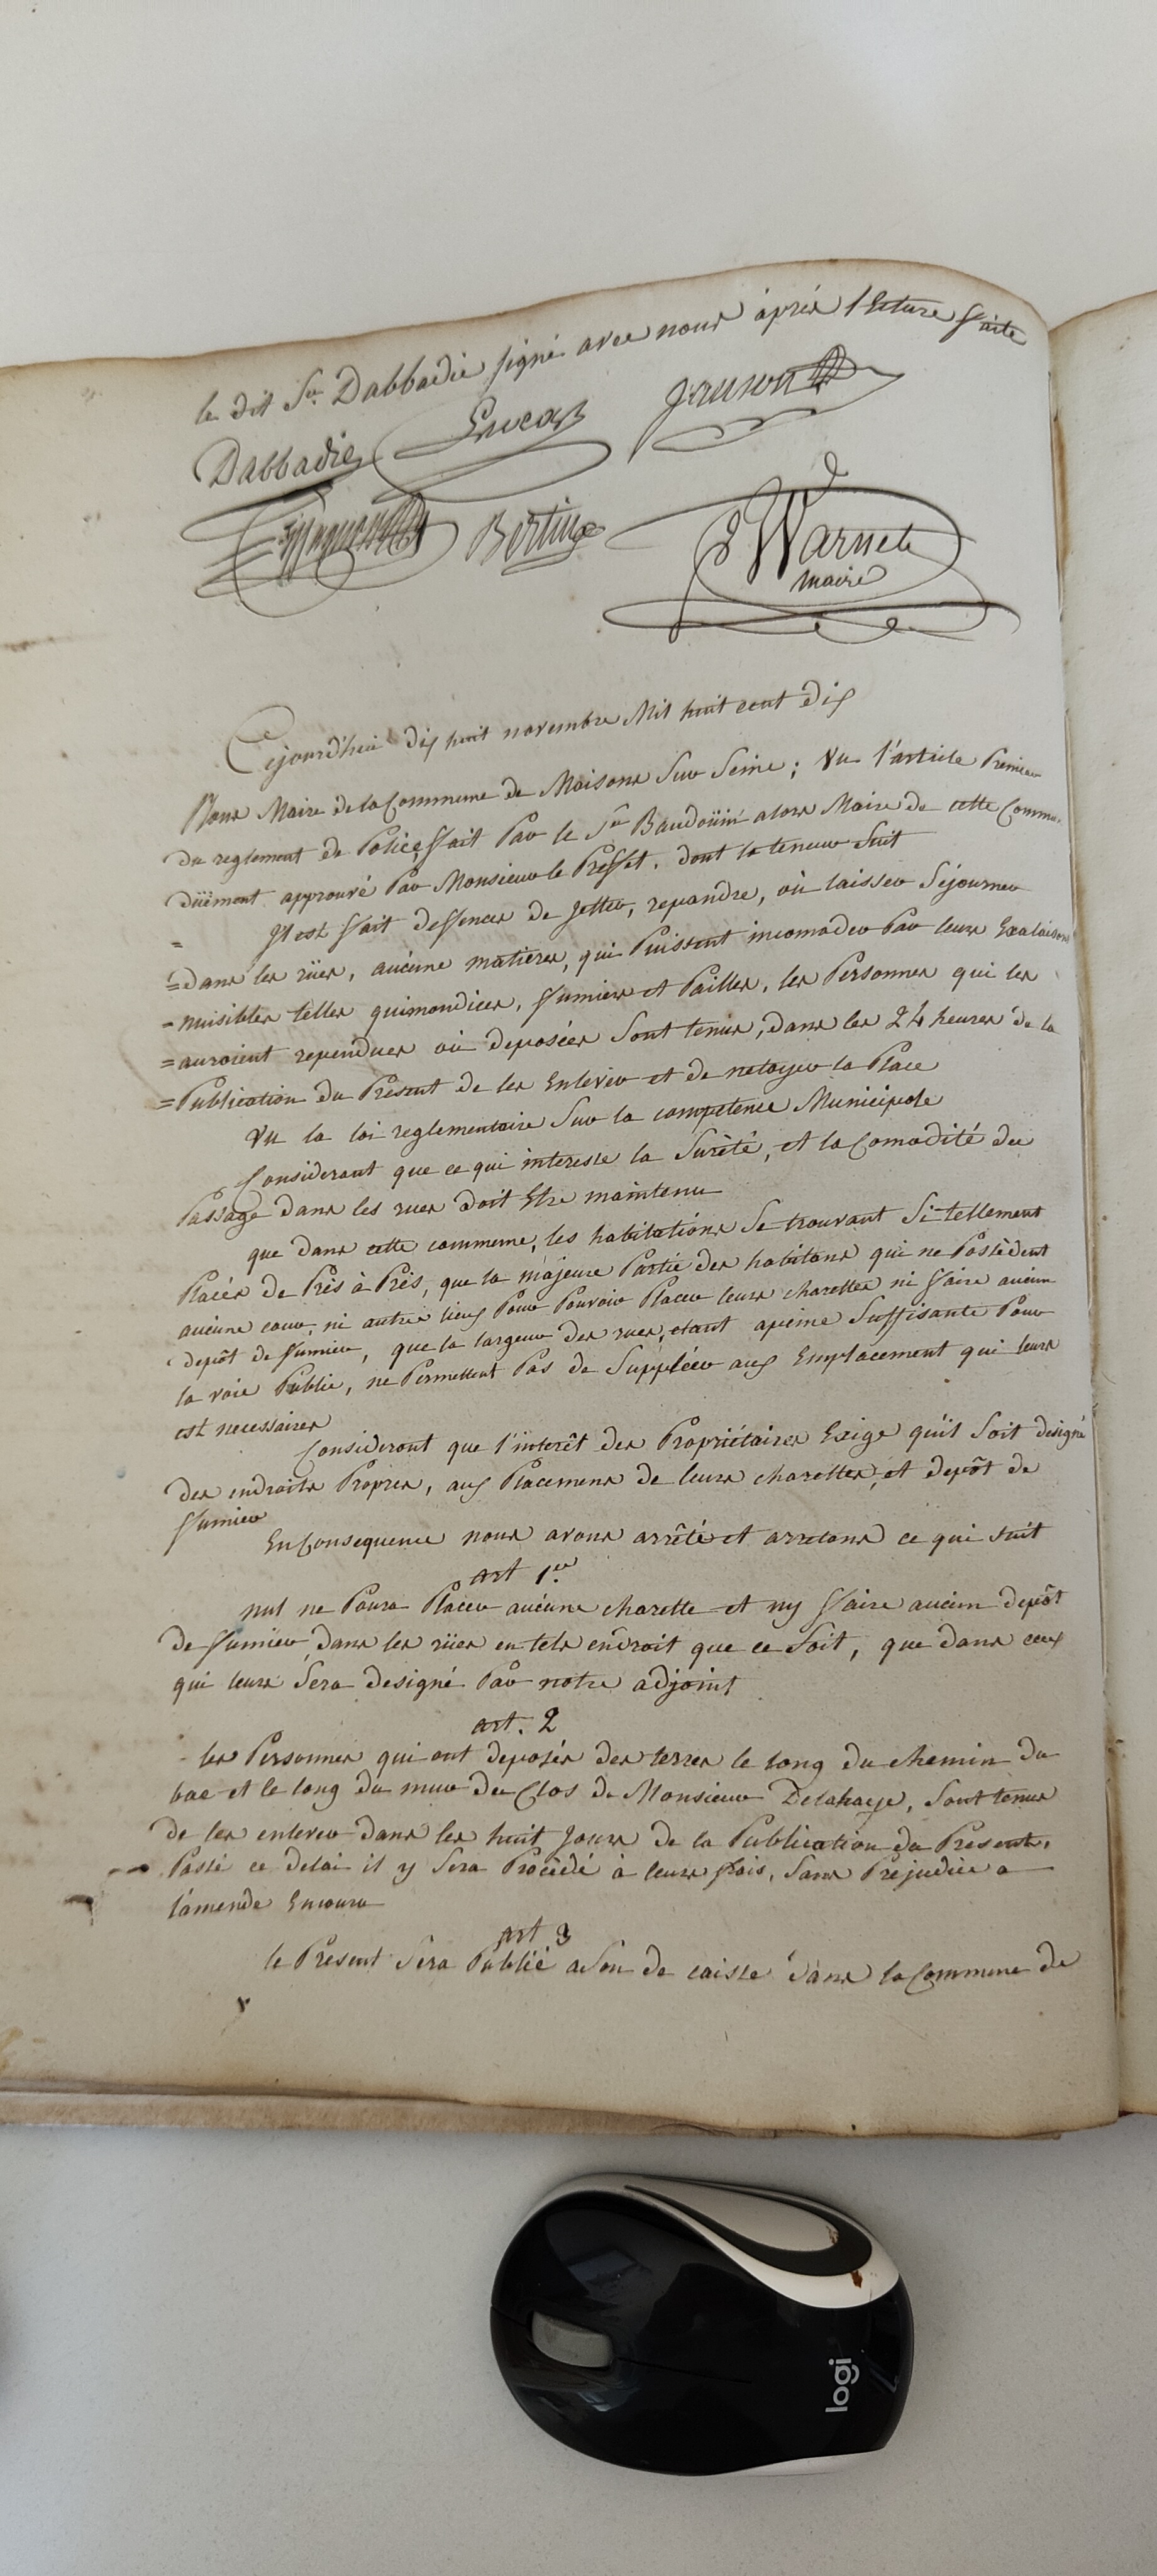 le dit Sr. Dabbadie signé avec nous áprés l'Ecture faite
Dabbadie Lucas Janson
Bertin
Warnet
maire
Cejourd'hui dix huit novembre Mil huit cent dix
Nous Maire de la Commune de Maisons Sur Seine ; Vu l'article Premier
du reglement de Police, fait Par le Sr Baudoüin alors Maire de cette Commu.
düement approuvé Par Monsieur le Preffet. dont la teneur Suit
= Il est fait deffences de Jetter, repandre, où laisser Séjourner
= dans les rües, aucune matieres, qui Puissent incomoder Par leurs Exalaisons
= nuisibles telles quimondices, fumiers et Pailles, les Personnes qui les
= auroient rependues où deposées Sont tenus, dans les 24 heures de la
= Publication du Présent de les Enlever et de netoyer la Place
Vu la loi reglementaire Sur la competence Municipale
Considerant que ce qui interesse la Surêté, et la Comodité du
Passage dans les rues doit Etre maintenu
que dans cette commune, les habitations Se trouvant Si tellement
Placés de Près à Près, que la majeure Partie des habitans qui ne Possèdent
aucune cour, ni autre lieux Pour Pouvoir Placer leurs charettes ni faire aucun
depôt de fumier, que la largeur des rues, etant apeine Suffisante Pour
la voie Public, ne Permettent Pas de Suppléer aux Emplacement qui leurs
est necessaires
Considerant que l'interêt des Propriétaires Exige qu'il Soit designé
des endroits Propres, aux Placemens de leurs charettes, et depôt de
fumier
En Consequence nous avons arrêté et arretons ce qui suit
art 1er
nul ne Poura Placer aucune charette et ny faire aucun depôt
de fumier dans les rües en tels endroit que ce Soit, que dans ceux
qui leurs Sera designé Par notre adjoint
art. 2
les Personnes qui ont deposés des terres le long du chemin du
bac et le long du mur du Clos de Monsieur Delahaye, Sont tenus
de les enlever dans les huit Jours de la Publication du Présent.
Passé ce delai il y Sera Procédé à leurs frais, Sans Préjudice a
l'amende Encouru
art 3
le Présent Sera Publié a Son de caisse dans la Commune de
logi